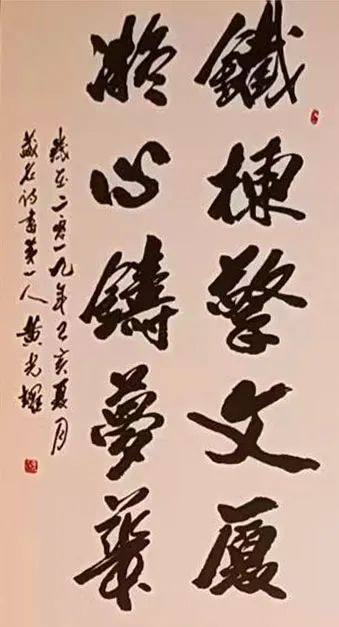 鐵棟擎文厦
凝心鑄夢華
歲至二零一九年己亥夏月
藏名诗書第一人黄光耀